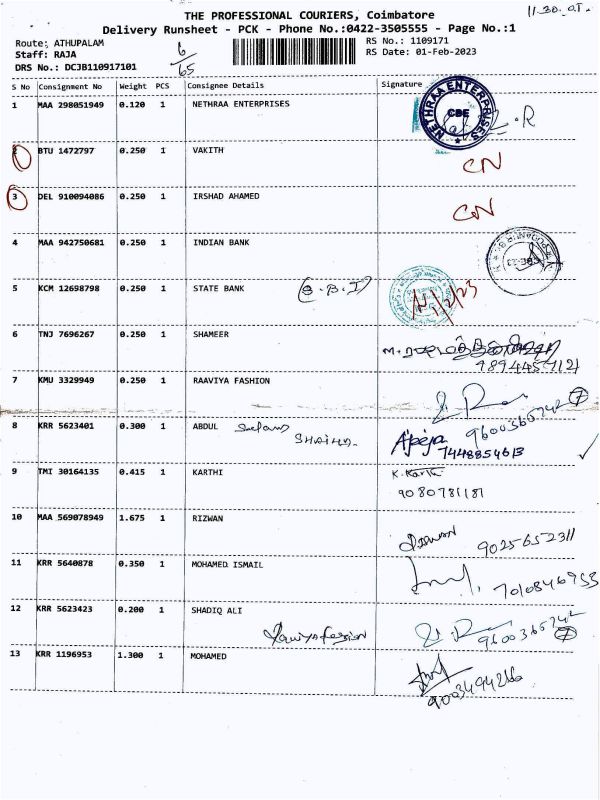 THE PROFESSIONAL COURIERS, Coimbatore
11.30.
Delivery Runsheet - PCK - Phone No.:0422-3505555 - Page No.:1
Route: ATHUPALAM
6/65
RS No.: 1109171
Staff: RAJA
RS Date: 01-Feb-2023
DRS No.: DCJB110917101
S No Consignment No Weight PCS Consignee Details Signature
1 MAA 298051949 0.120 1 NETHRAA ENTERPRISES
NETHRAA ENTERPRISES
CBE
2 BTU 1472797 0.250 1 VAKITH CN
3 DEL 910094086 0.250 1 IRSHAD AHAMED CN
4 MAA 942750681 0.250 1 INDIAN BANK
5 KCM 12698798 0.250 1 STATE BANK (S.B.I) 1/2/23
6 TNJ 7696267 0.250 1 SHAMEER
9894457121
7 KMU 3329949 0.250 1 RAAVIYA FASHION
9600365742 7
8 KRR 5623401 0.300 1 ABDUL
7448854613
9 TMI 30164135 0.415 1 KARTHI K. Karthi
9080781181
10 MAA 569078949 1.675 1 RIZWAN
9025652311
11 KRR 5640878 0.350 1 MOHAMED ISMAIL
7010846953
12 KRR 5623423 0.200 1 SHADIQ ALI
9600365742 7
13 KRR 1196953 1.300 1 MOHAMED
9003494266